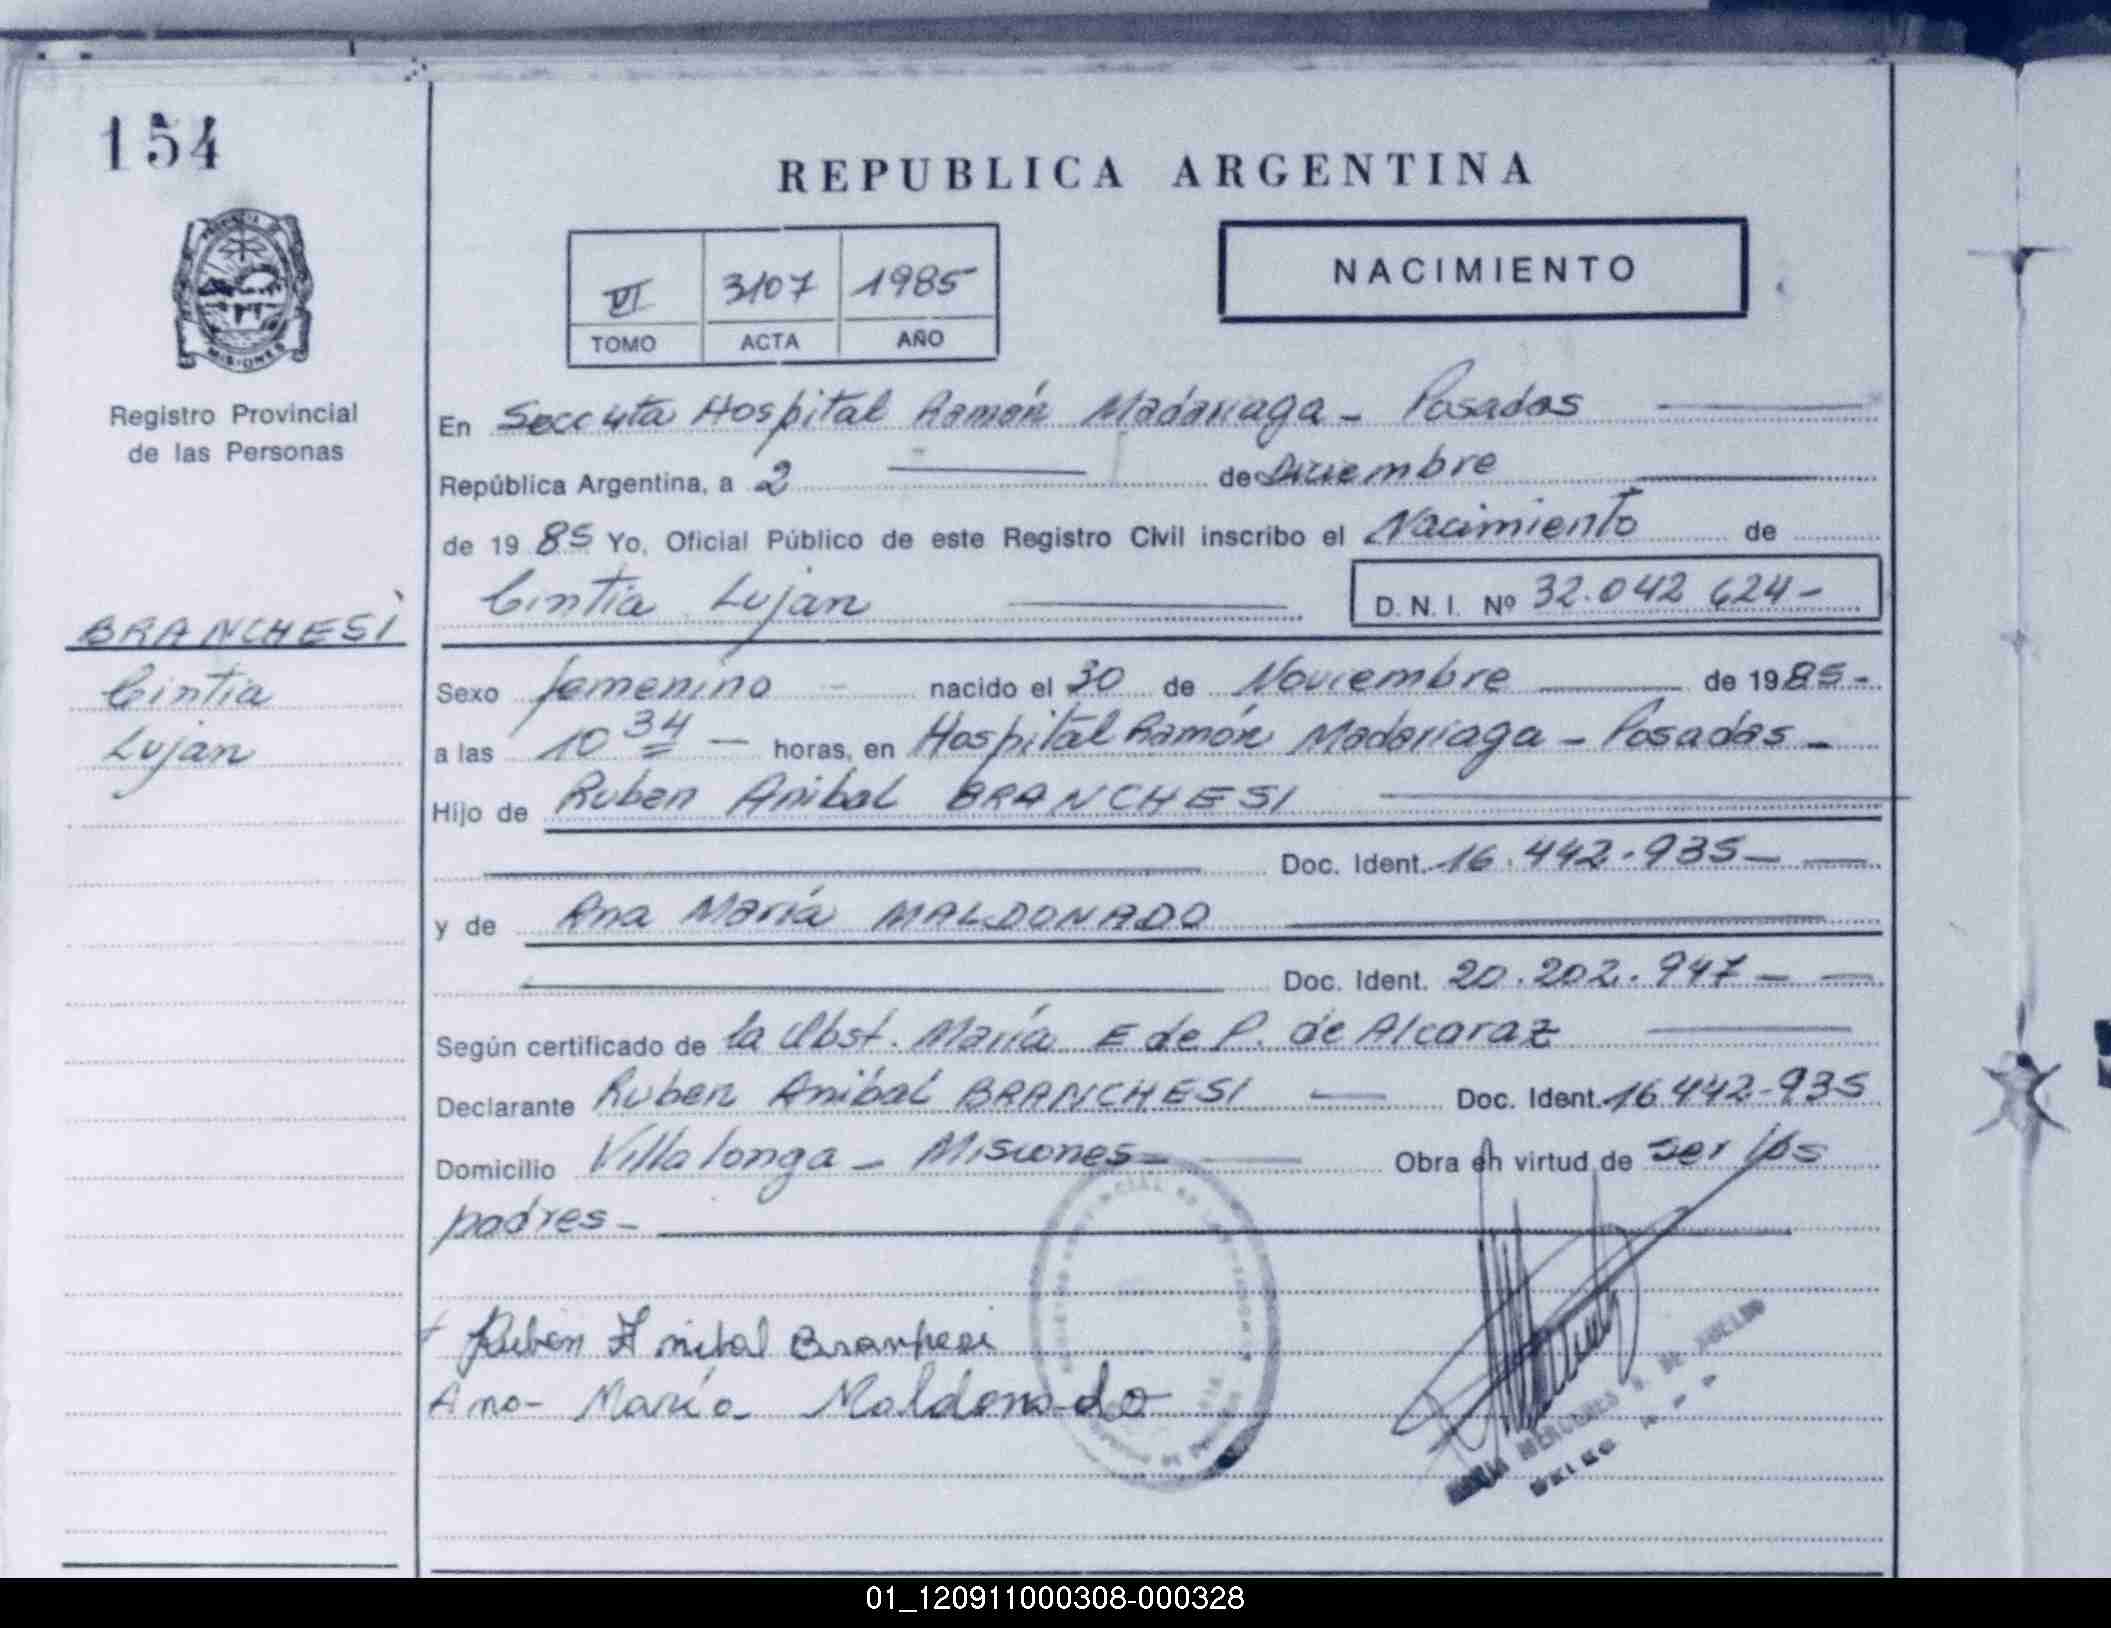 154
REPUBLICA ARGENTINA
VI 3107 1985
TOMO ACTA AÑO
NACIMIENTO
MISIONES
Registro Provincial
de las Personas
BRANCHESI
Cintia
Lujan
En Secc 4ta Hospital Ramón Madariaga - Posadas
República Argentina, a 2 de Diciembre
de 19 85 Yo, Oficial Público de este Registro Civil inscribo el Nacimiento de
Cintia Lujan D.N.I. Nº 32.042 624-
Sexo femenino nacido el 30 de Noviembre de 1985-
a las 10 34 - horas, en Hospital Ramón Madariaga - Posadas -
Hijo de Ruben Anibal BRANCHESI
Doc. Ident. 16.442.935-
y de Ana María MALDONADO
Doc. Ident. 20.202.947-
Según certificado de la Obst. María E de P. de Alcaraz
Declarante Ruben Anibal BRANCHESI Doc. Ident. 16.442-935
Domicilio Villalonga - Misiones - Obra en virtud de ser los
padres -
Ruben Anibal Branchesi
Ana María Maldonado
MERCEDES DE
01_120911000308-000328